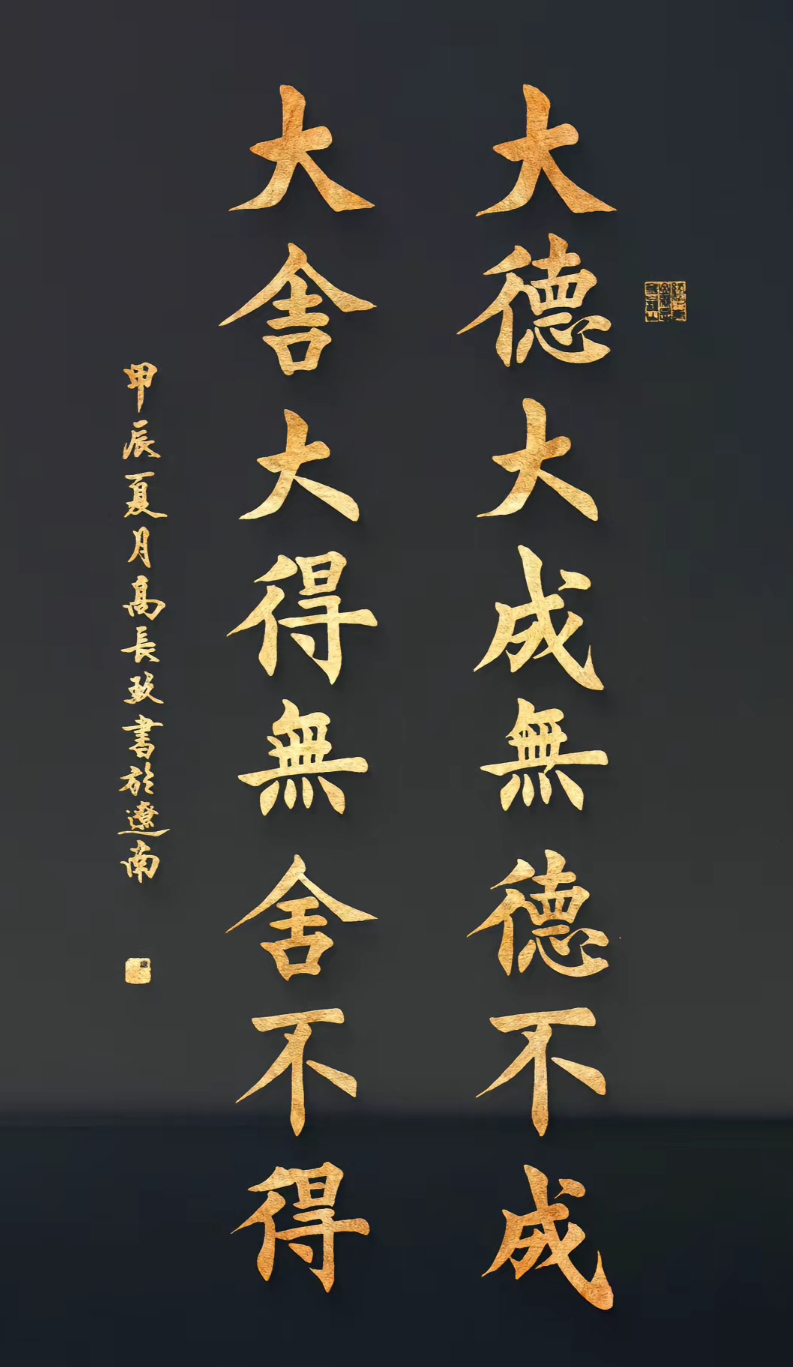 大德大成無德不成
大舍大得無舍不得
甲辰夏月高長玖書於遼南